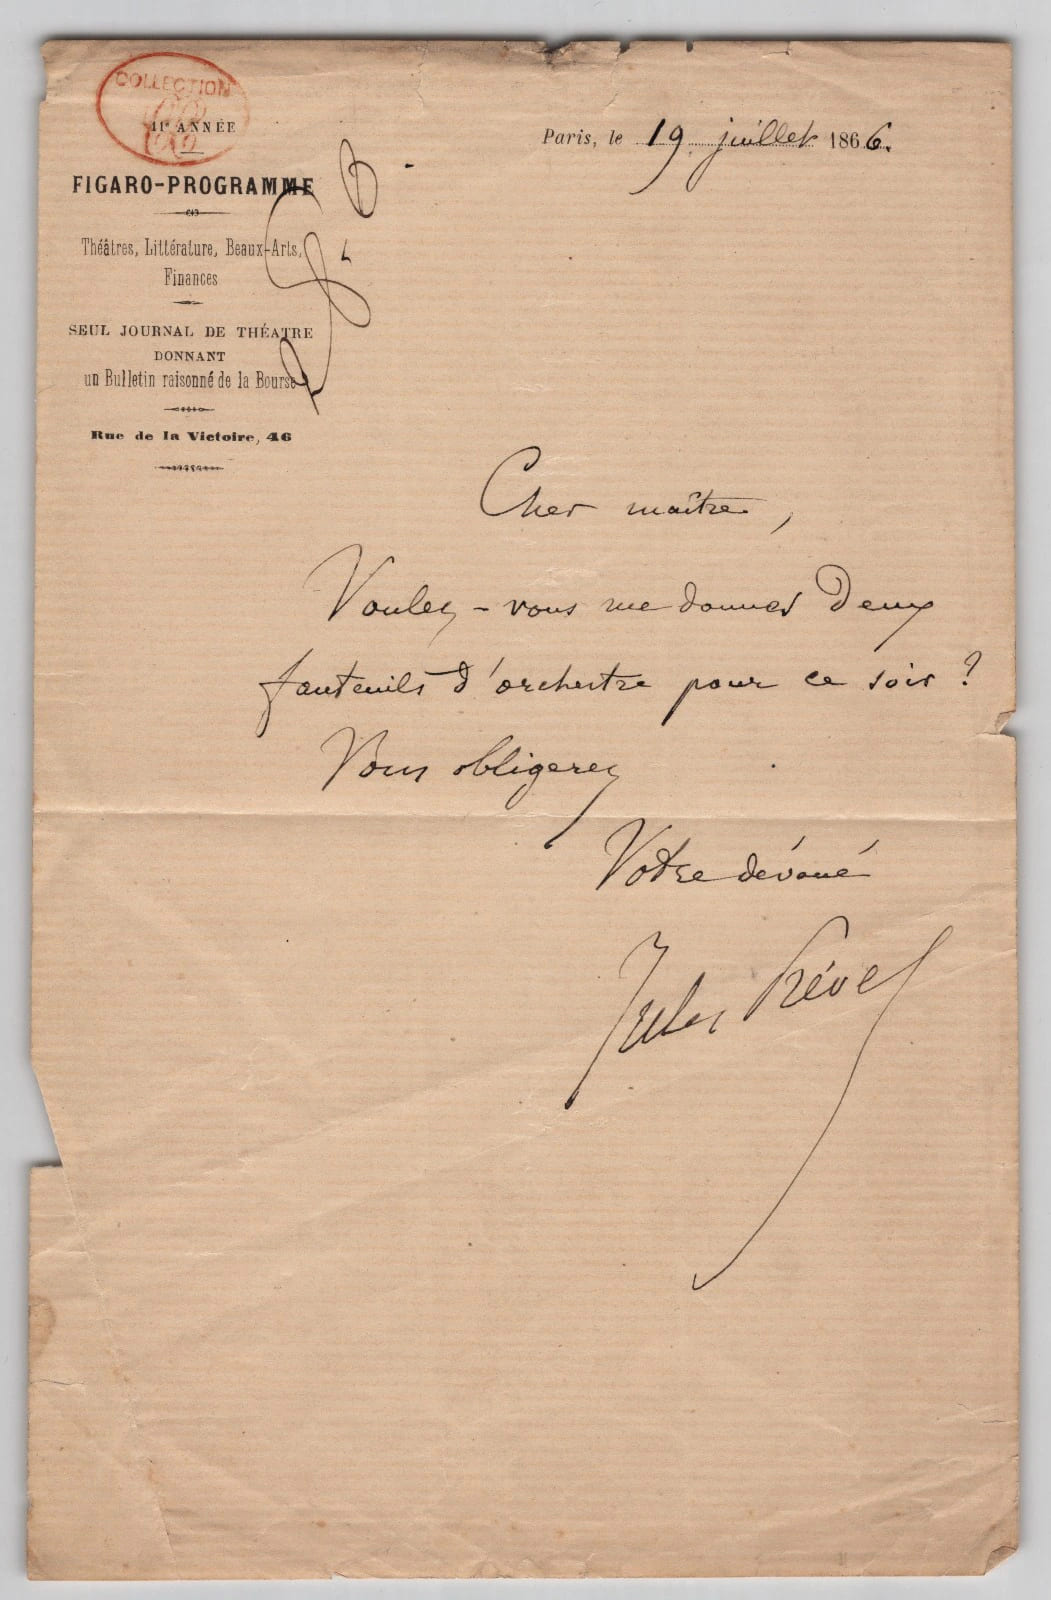 COLLECTION
11e ANNÉE
FIGARO-PROGRAMME
Théâtres, Littérature, Beaux-Arts,
Finances
SEUL JOURNAL DE THÉATRE
DONNANT
un Bulletin raisonné de la Bourse
Rue de la Victoire, 46
Paris, le 19 juillet 1866.
Cher maître,
Voulez-vous me donner deux
fauteuils d'orchestre pour ce soir ?
Vous obligerez
Votre dévoué
Jules Prével